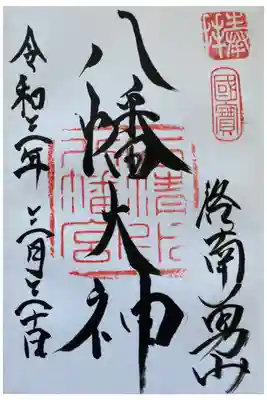 奉拝
國寶
洛南男山
八幡大神
石清水
八幡宮
令和年月十日